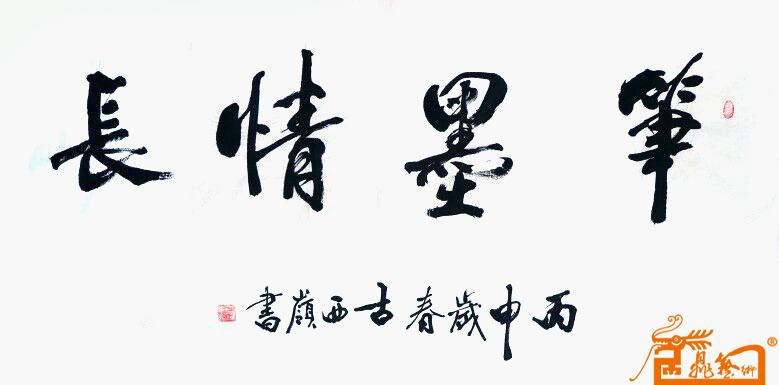 筆墨情長
丙申歲春古西嶺書